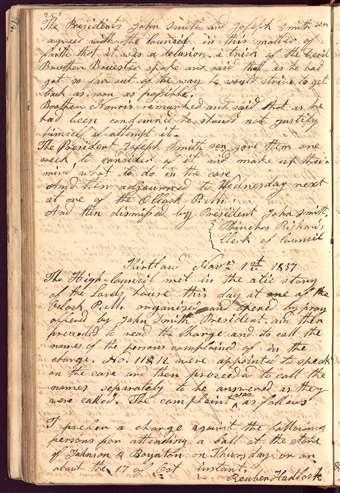 The Presidents John Smith and Joseph Smith sen
agreed with the Council in this matter of
faith that it was a delusion a trick of the Devil
Brother Brewster spoke and said that as he had
got so far out of the way he would strive to get
back as soon as possible.
Brother Norris remarked and said that as he
had been condemned he should not justify
himself or attempt it.
The President Joseph Smith sen gave them one
week to consider of it and make up their
mind what to do in the case
And then adjourned to Wednesday next
at one of the Clock P.M.
And then dismissed by President John Smith,
Phinehas Richards
Clerk of Council
Kirtland Nov. 1st 1837
The High Council met in the attic story
of the Lords house this day at one of the
Clock P.M. organized and opened by pray
by John Smith President, and then
proceeded to read the charge and to call the
names of the persons complained of in the
charge. No. 11 & 12 were appointed to speak
on the case and then proceed to call the
names separately to be answered as they
were called. The complaint was as follows
I prefer a charge against the following
persons for attending a ball at the store
of Johnson & Boynton on Thursday on or
about the 17 of Oct instant
Reuben Hadlock